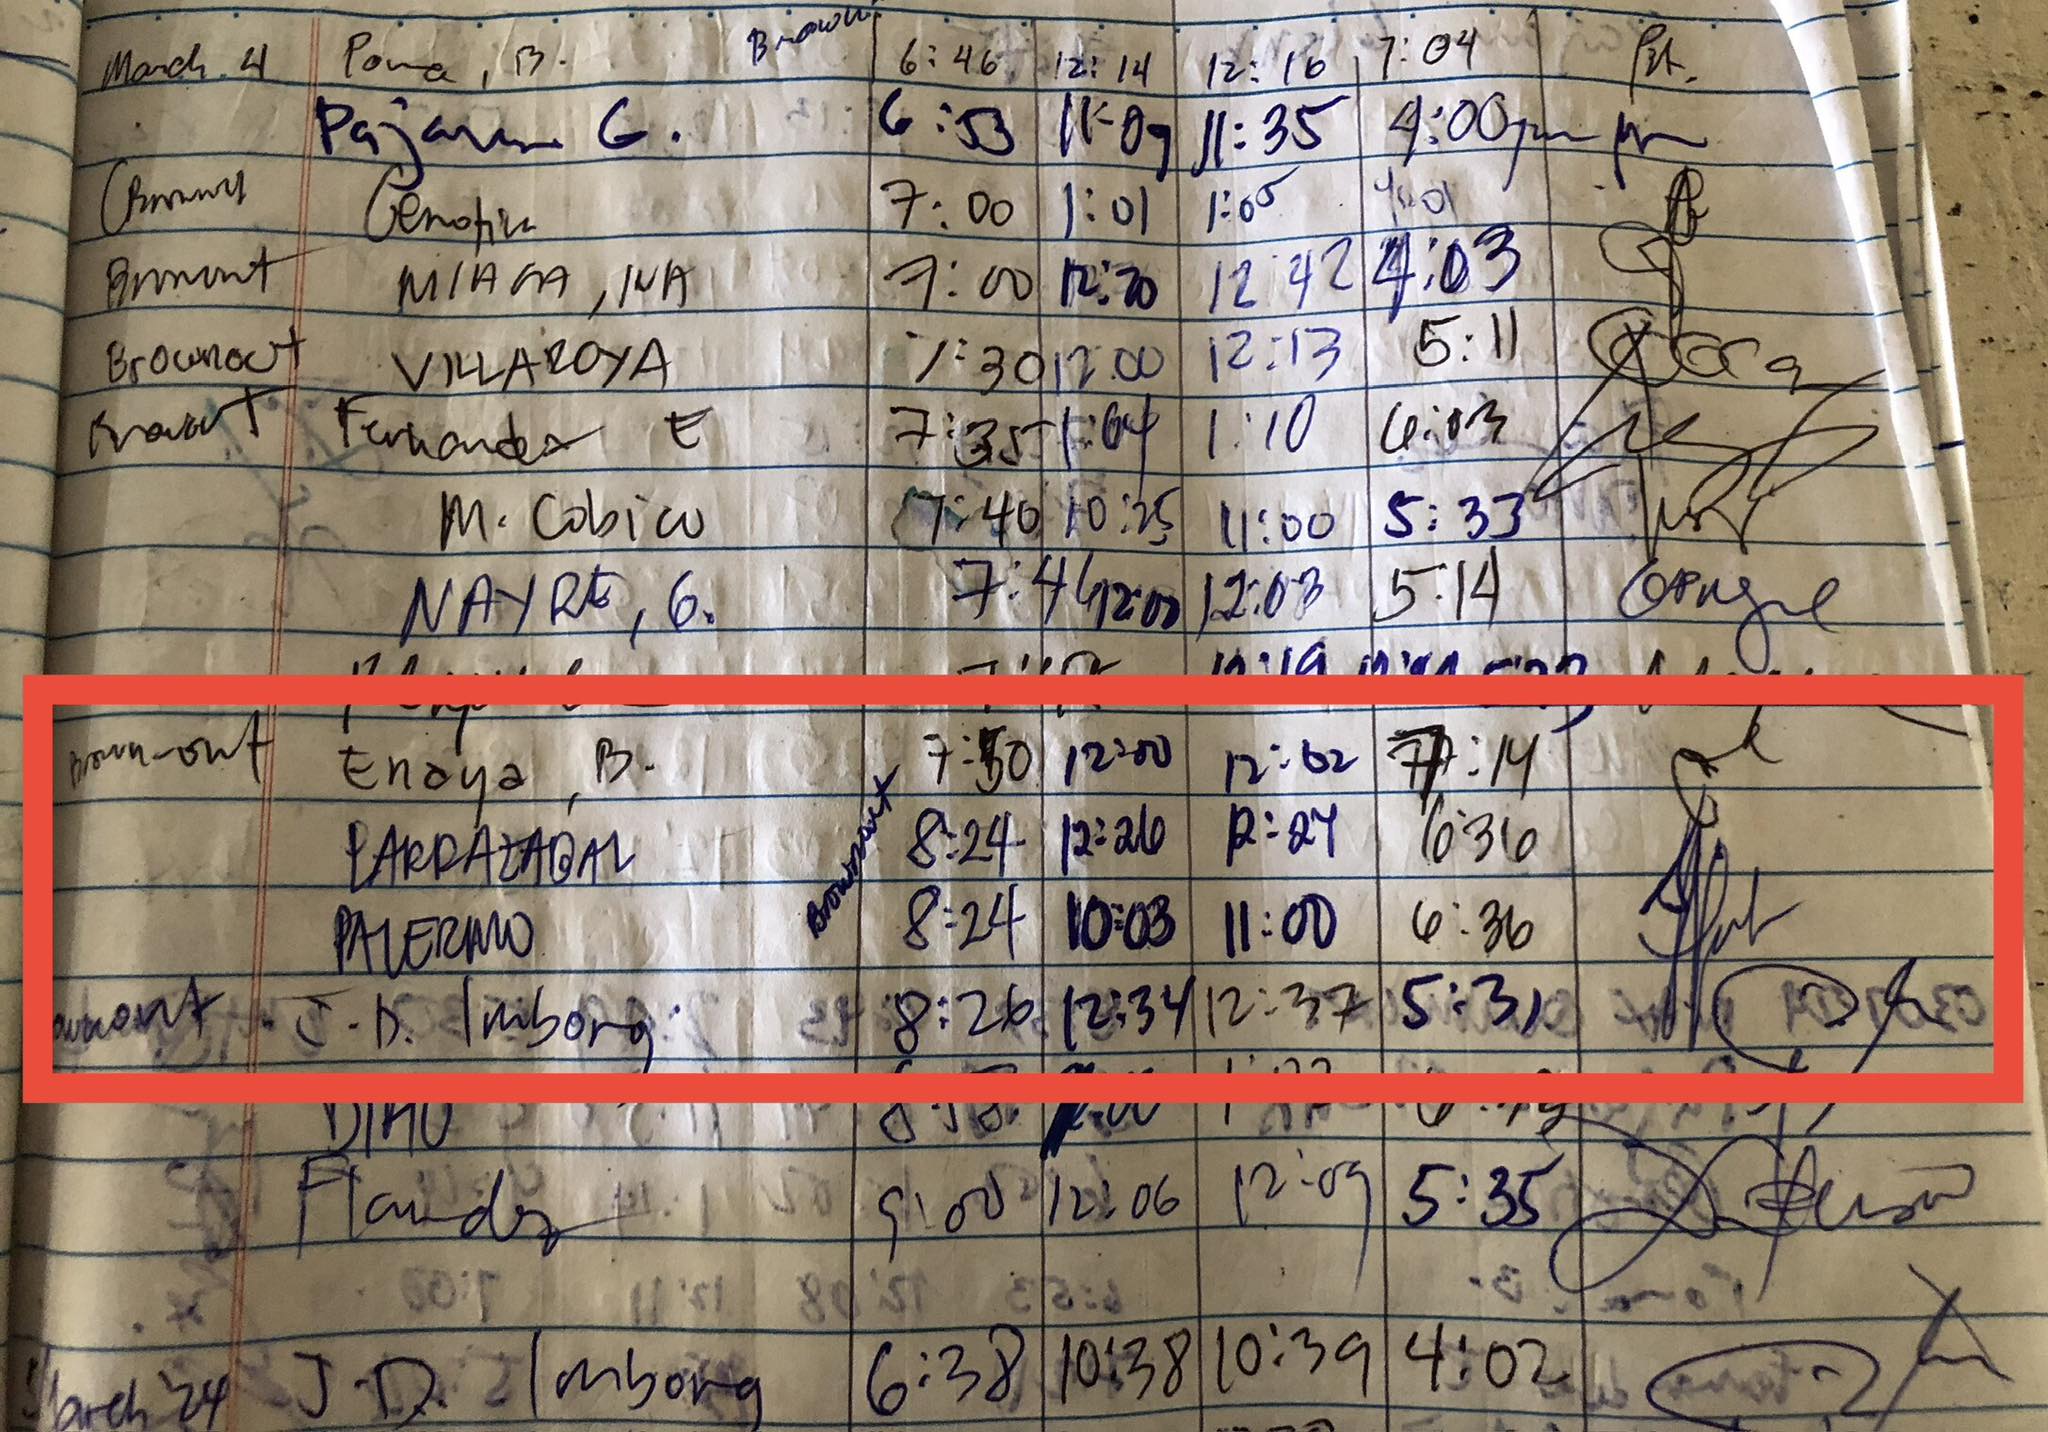 March 4 Poma, B. Brown 6:46 12:14 12:16 7:04
Pajarin G. 6:53 11:09 11:35 4:00pm
7:00 1:01 1:05 4:01
Brownout MIAGA, INA 7:00 12:20 12:42 4:03
Brownout VILLAROYA 7:30 12:00 12:13 5:11
Brownout Fernandez E 7:35 1:04 1:10 6:03
M. Cobico 7:40 10:25 11:00 5:33
NAYRE, G. 7:46 12:00 12:03 5:14
12:19
Brown-out Enaya, B. 7:50 12:00 12:02 7:14
PARRAZABAL Brownout 8:24 12:26 12:27 6:36
PALERMO 8:24 10:03 11:00 6:36
J.D. Imborg 8:26 12:34 12:37 5:31
8:58
Flandez 9:00 12:06 12:09 5:35
March '24 J.D. Imborg 6:38 10:38 10:39 4:02